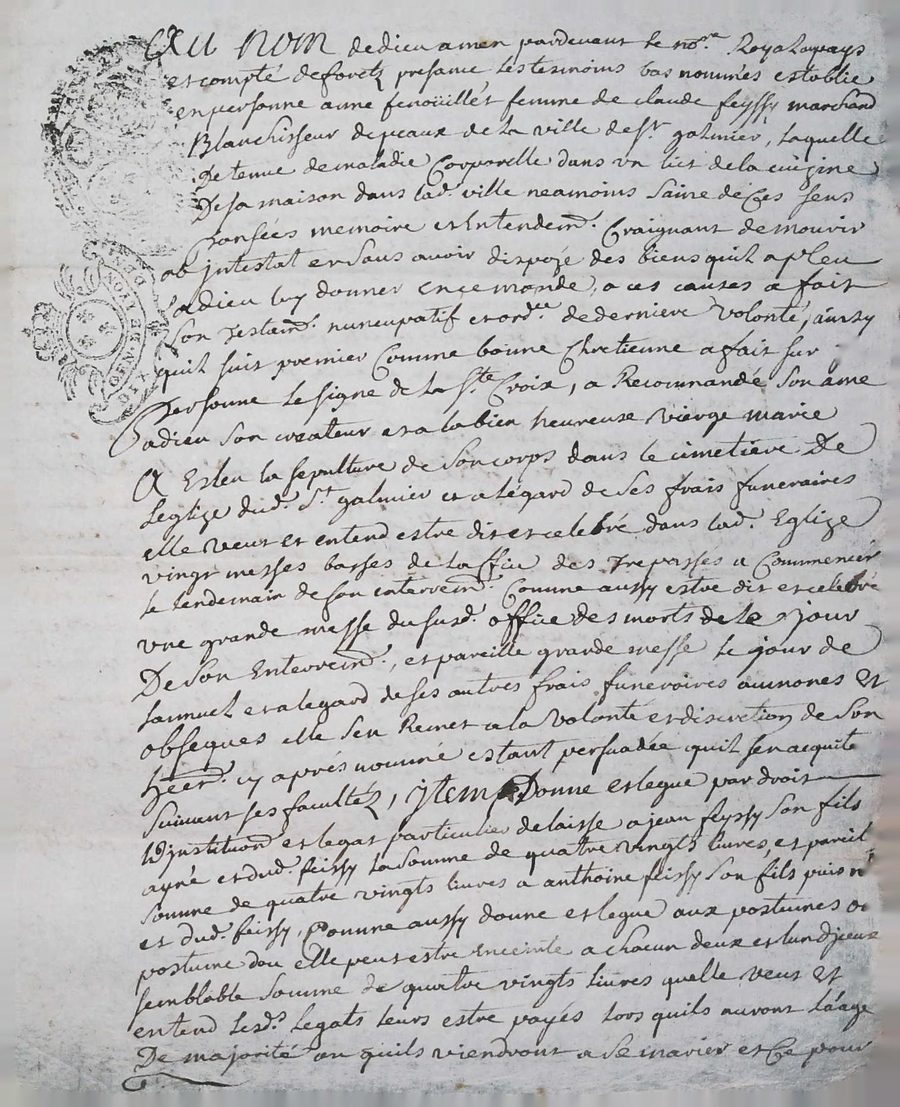 Au nom de dieu amen pardevant le no.re Royal au pays
et compté de foretz presance les tesmoins bas nommés establie
en personne anne fenoüillet femme de claude feyssy marchand
Blanchisseur de peaux de la ville de st galmier, laquelle
detenue de maladie Corporelle dans un lict de la cuizine
De sa maison dans lad. ville neamoins saine de ces sens
pansées memoire et Entendem.t Craignant de mourir
ab jntestat et sans avoir dispozé des biens quil a pleu
a dieu luy donner en ce monde, a ces causes a fait
son Testam.t nuncupatif et ord.ce de derniere volonté, ainsy
quil suit premier Comme bonne Chretienne a fait sur
Personne le signe de la ste Croix, a Recommandé son ame
a dieu son createur et a la bien heureuse vierge marie
A Esleu la sepulture de son corps dans le cimetiere De
leglize dud. St galmier et a legard de ses frais funeraires
elle veut et entend estre dit et celebré dans lad. Eglize
vingt messes basses de la ffice des Trepassés a Commencer
le lendemain de son enterrem.t Comme aussy estre dit et celebré
une grande messe du susd. office des morts de le jour
De son Enterrem.t, et pareille grande messe le jour de
lannuel et a legard de ses autres frais funeraires aumones et
obseques elle sen Remet a la volonté et discretion de son
heert. cy aprés nommé estant persuadée quil sen acquite
suivant ses facultéz, jtem Donne et legue par droit
Dinstitution et legat particulier delaisse a jean feyssy son fils
ayné et dud. feissy la somme de quatre vingts livres, et pareil
somme de quatre vingts livres a anthoine feissy son fils puis n
et dud. feissy, Comme aussy donne et legue aux postumes ou
postume dou elle peut estre enceinte a chacun deux et lund jceux
semblable somme de quatre vingts livres quelle veut et
entend lesd.s legats leurs estre payés lors quils auront laage
De majorité ou quils viendront a se marier et Ce pour
DE LYON